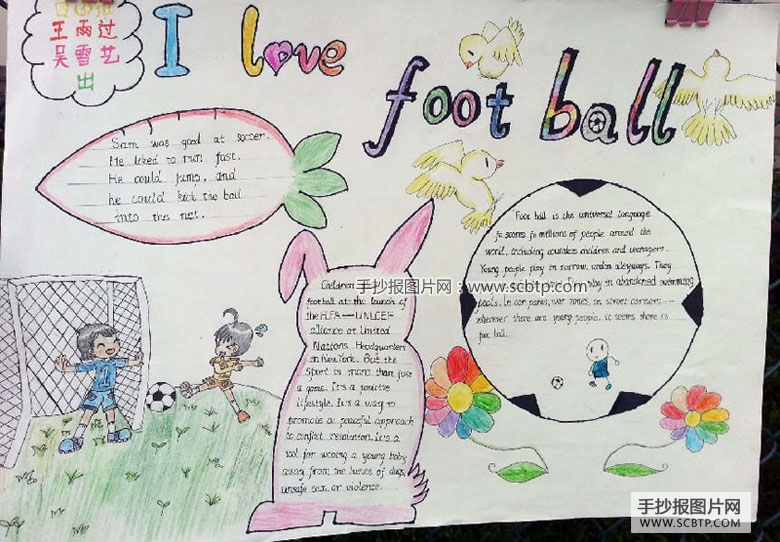 王雨过
吴雪艺
出
I love
foot ball
Sam was good at soccer.
He liked to run fast.
He could jump, and
he could kick the ball
into the net.
Children
football at the launch of
the FIFA — UNICEF
alliance at United
Nations Headquarters
in New York. But the
sport is more than just
a game. It's a positive
lifestyle. It's a way to
promote a peaceful approach
to conflict resolution. It's a
tool for a young
away from the lures of drugs,
unsafe sex, or violence.
Foot ball is the universal language
to millions of people around the
world, including countless children and teenagers.
Young people play in narrow, urban alleyways. They
play in abandoned swimming
pools. In car parks, war zones, on street corners —
wherever there are young people, it seems there is
foot ball.
手抄报图片网:www.scbtp.com
手抄报图片网
WWW.SCBTP.COM